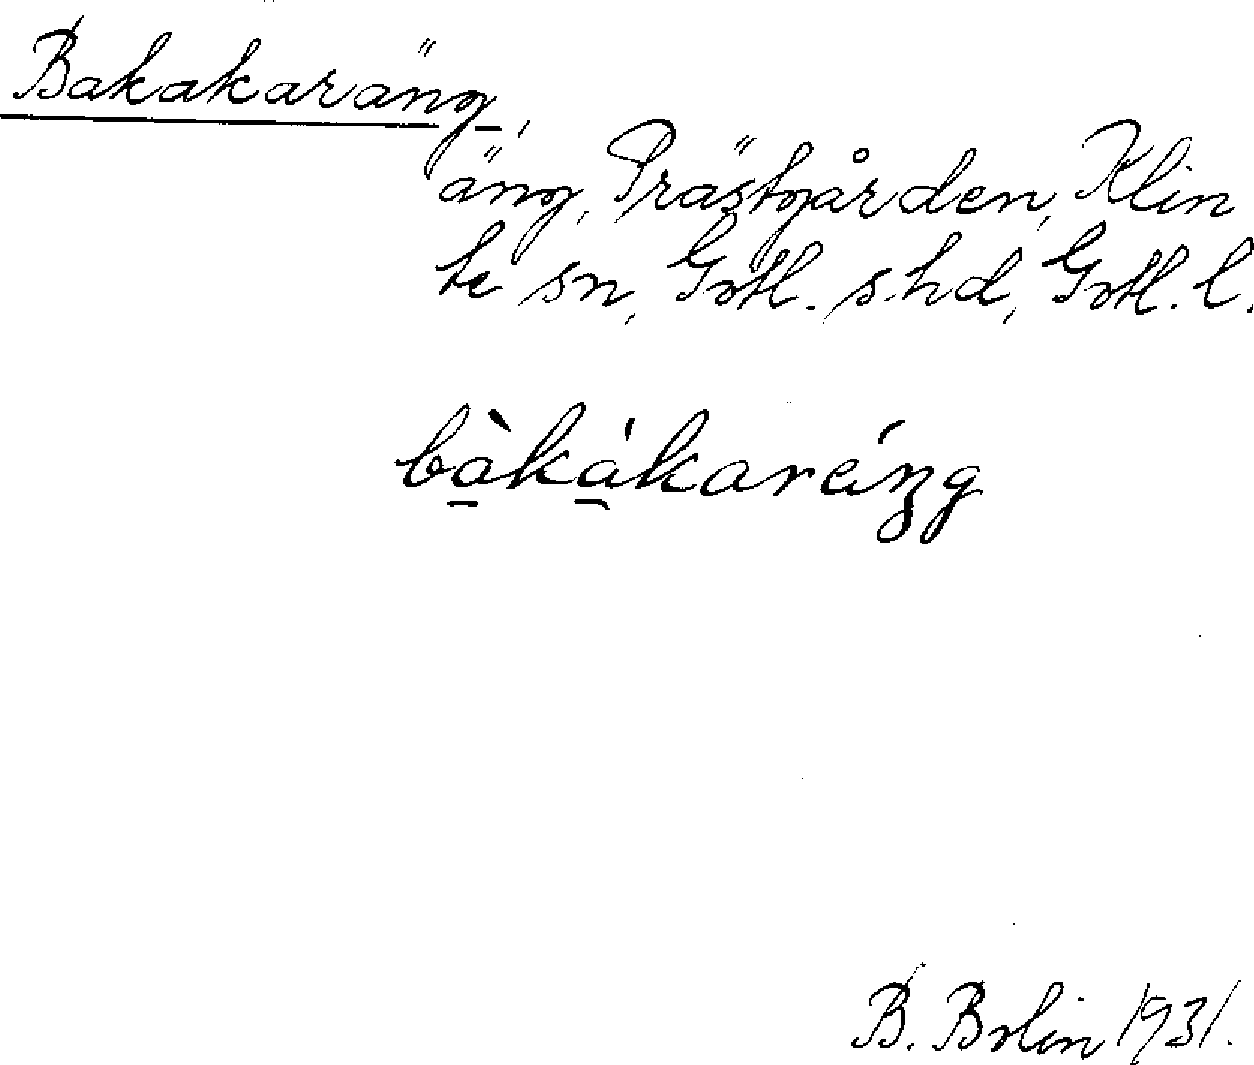 Bakakaräng,
äng, Prästgården, Klin
te sn, Gotl. s. hd, Gotl. l.
bàkákaréŋg
B. Bolin 1931.